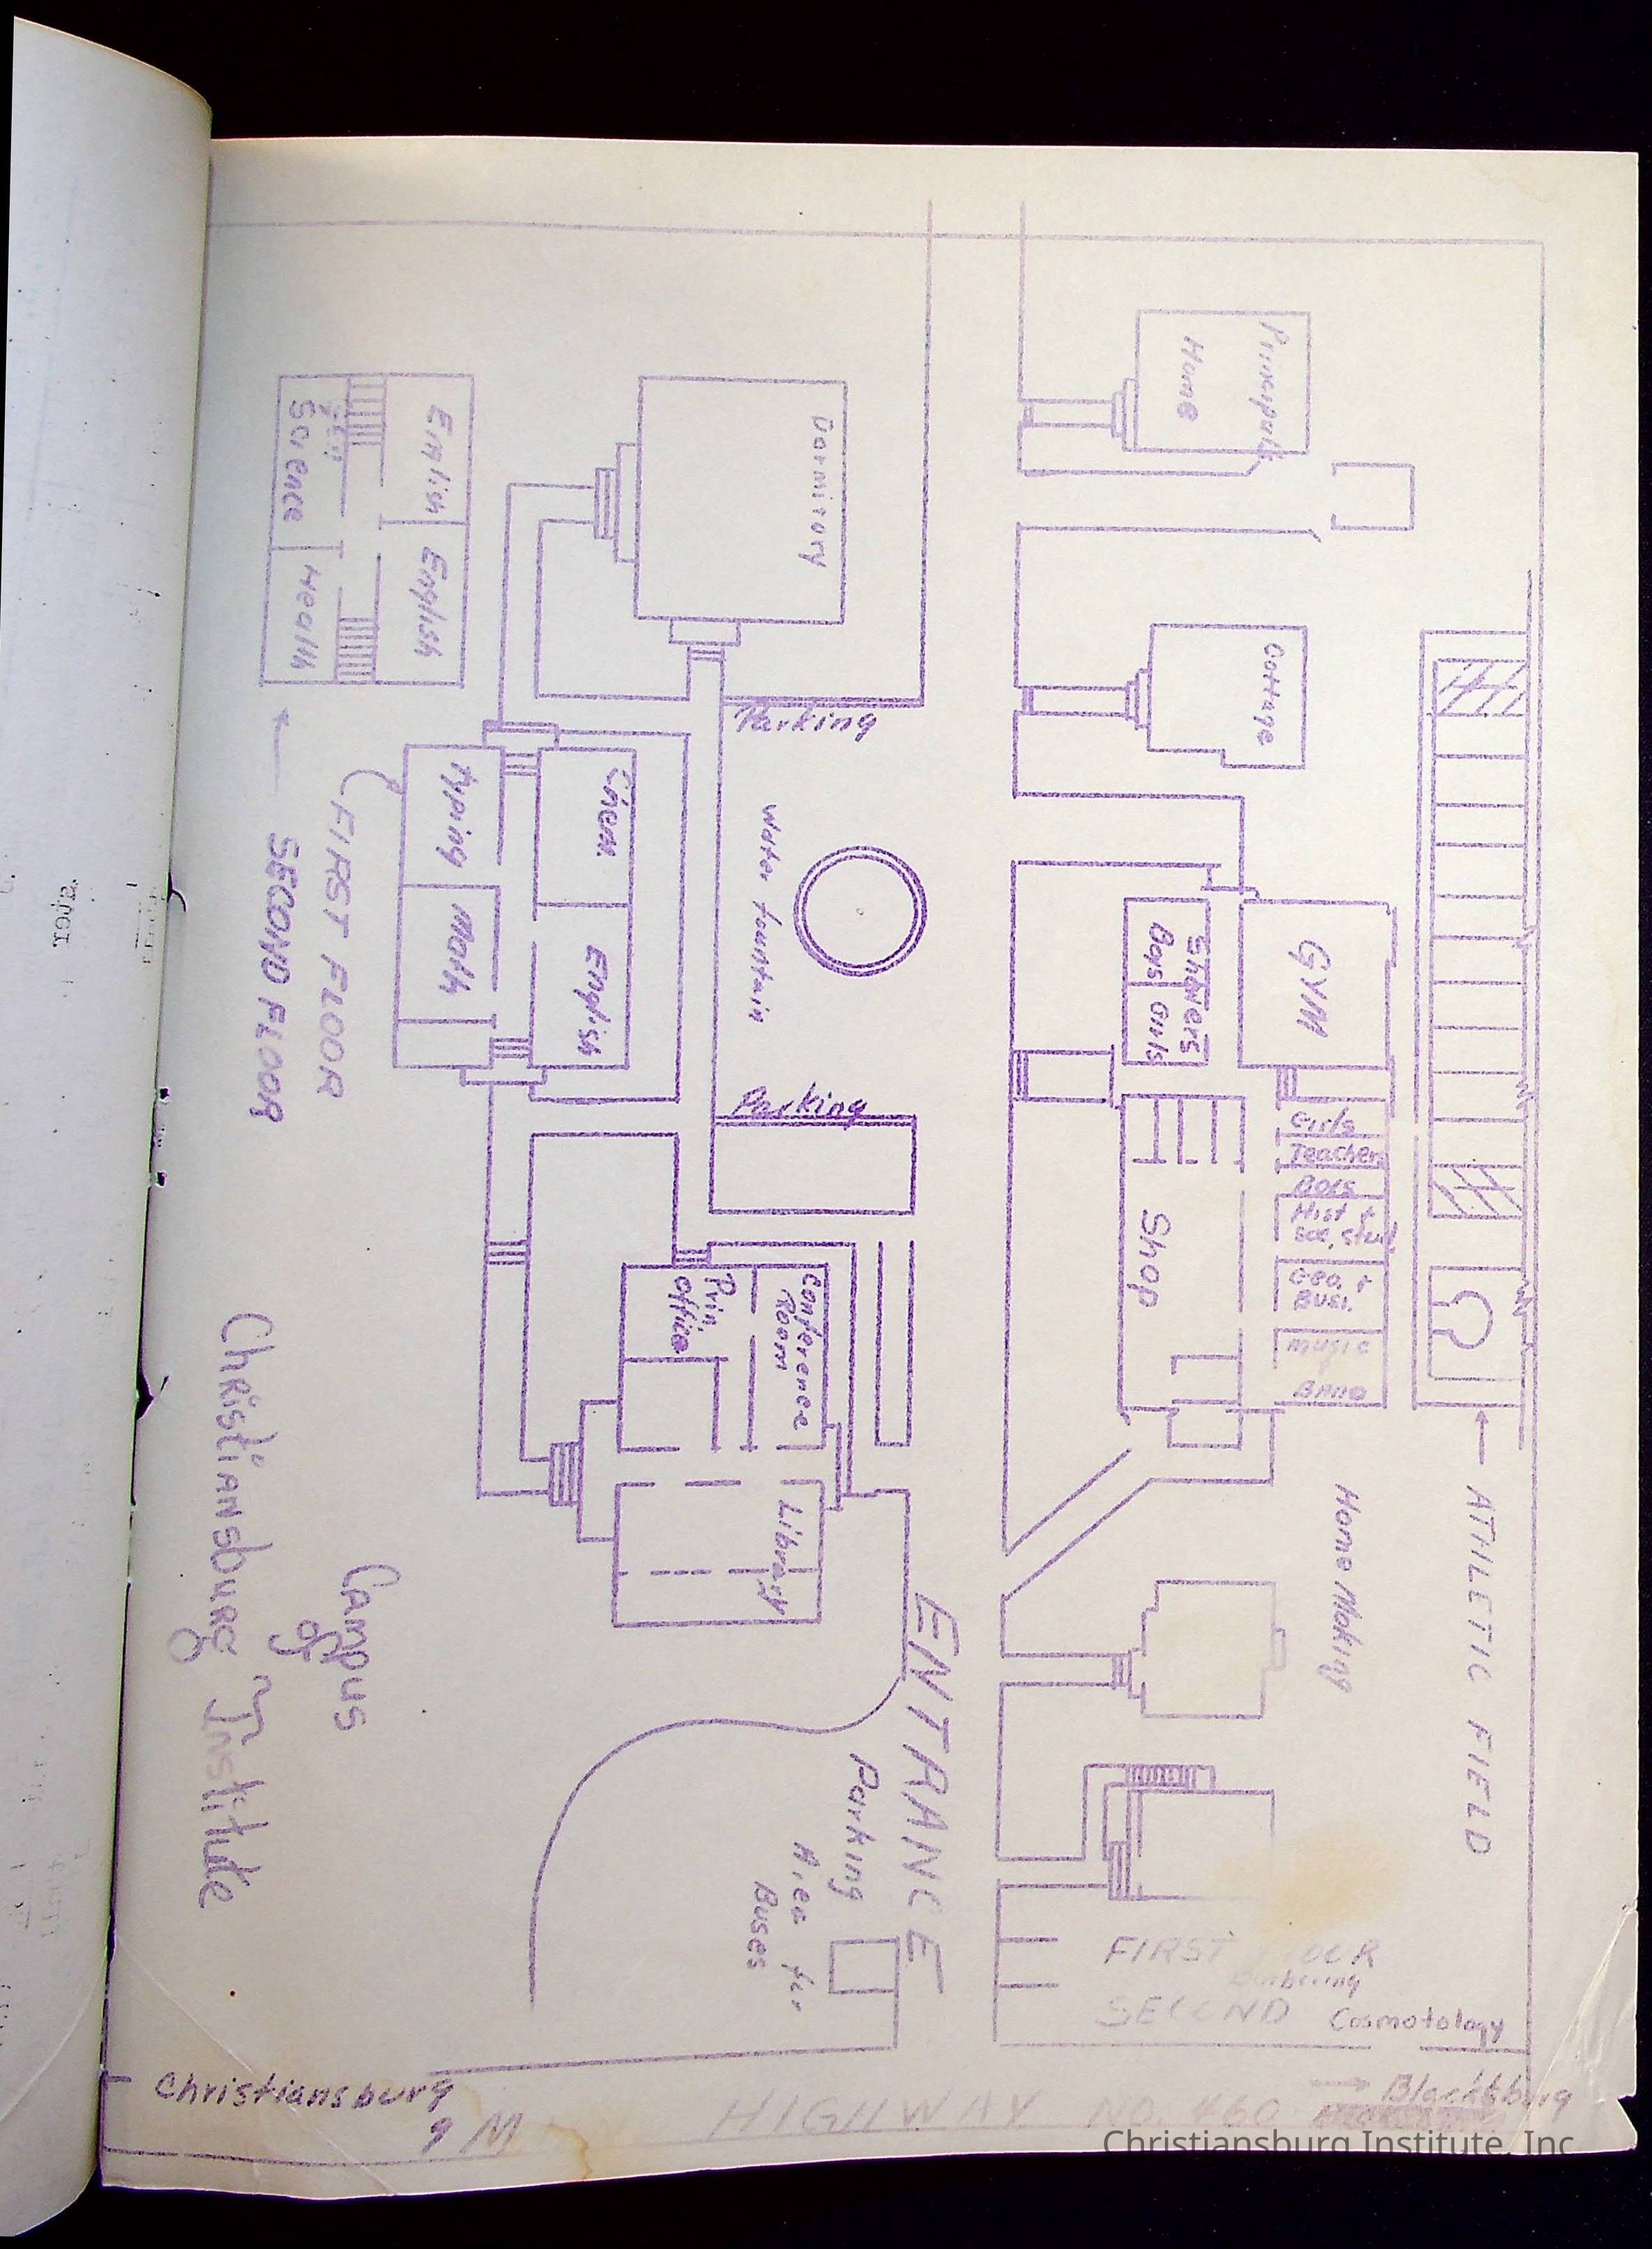 Principal's
Home
Cottage
Dormitory
Parking
Water fountain
Parking
GYM
Showers
Boys Girls
Girls
Teachers
Boys
Hist +
Soc. Stud.
Geo. +
Busi.
Music
BAND
Shop
← ATHLETIC FIELD
Home Making
English English
Science Health
Chem English
Typing Math
FIRST FLOOR
← SECOND FLOOR
Conference
Room
Prin
Office
Library
ENTRANCE
Parking
Area for
Buses
FIRST FLOOR
Barbering
SECOND Cosmotology
Campus
of
Christiansburg Institute
Christiansburg
HIGHWAY NO. 460
→ Blacksburg
Christiansburg Institute, Inc